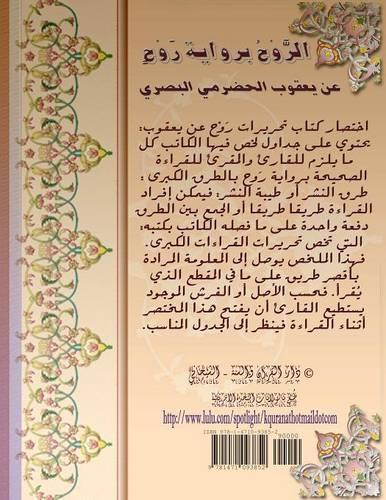 الرَّوْحُ برواية رَوْحِ
عن يعقوب الحضرمي البصري
اختصار كتاب تحريرات رَوْح عن يعقوب:
يحتوي على جداول لخص فيها الكاتب كل
ما يلزم للقارئ والمقرئ للقراءة
الصحيحة برواية رَوح بالطرق الكبرى :
طرق النشر أو طيبة النشر: فيمكن إفراد
القراءة طريقا طريقا أو الجمع بين الطرق
دفعة واحدة على ما فصله الكاتب بكتبه:
التي تخص تحريرات القراءات الكبرى.
فهذا الملخص يوصل إلى المعلومة المرادة
بأقصر طريق على ما في المقطع الذي
يُقرأ. فحسب الأصل أو الفرش الموجود
يستطيع القارئ أن يفتح هذا المختصر
أثناء القراءة فينظر إلى الجدول المناسب.
© دار القرآن والسنة -
http://www.lulu.com/spotlight/kquranathotmaildotcom
ISBN 978-1-4710-9385-2
90000
9 781471 093852